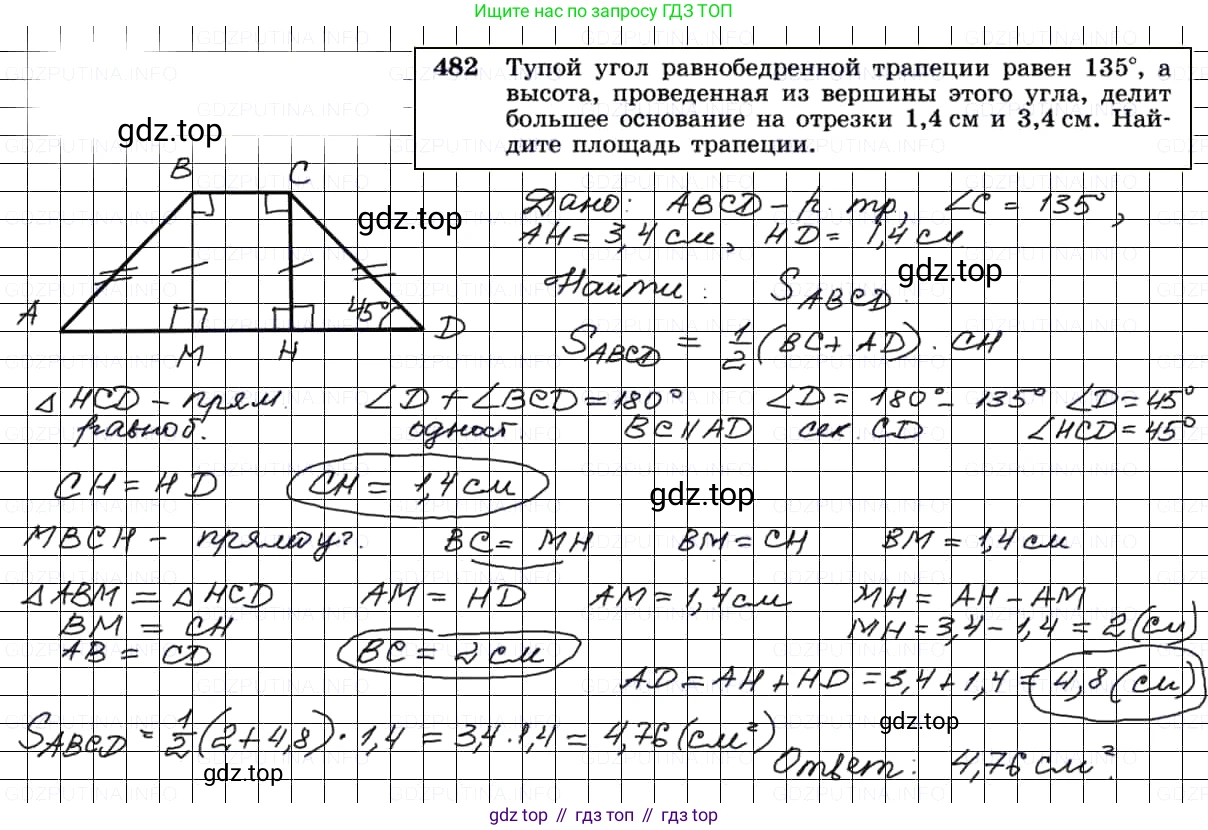 Ищите нас по запросу ГДЗ ТОП
482 Тупой угол равнобедренной трапеции равен 135°, а
высота, проведенная из вершины этого угла, делит
большее основание на отрезки 1,4 см и 3,4 см. Най-
дите площадь трапеции.
gdz.top
B C
gdz.top
A 45° D
M H
Дано: ABCD - р. тр., ∠C = 135°,
AH = 3,4 см, HD = 1,4 см.
gdz.top
Найти: S ABCD.
S ABCD = 1/2 (BC + AD) · CH
△ HCD - прям. ∠D + ∠BCD = 180° ∠D = 180° - 135° ∠D = 45°
равноб. одност. BC || AD сек. CD ∠HCD = 45°
CH = HD CH = 1,4 см
gdz.top
MBCH - прямоуг. BC = MH BM = CH BM = 1,4 см
△ ABM = △ HCD AM = HD AM = 1,4 см MH = AH - AM
BM = CH MH = 3,4 - 1,4 = 2 (см)
AB = CD BC = 2 см
AD = AH + HD = 3,4 + 1,4 = 4,8 (см)
gdz.top
S ABCD = 1/2 (2 + 4,8) · 1,4 = 3,4 · 1,4 = 4,76 (см²)
gdz.top
Ответ: 4,76 см².
gdz top // гдз топ // gdz top
GDZPUTINA.INFO